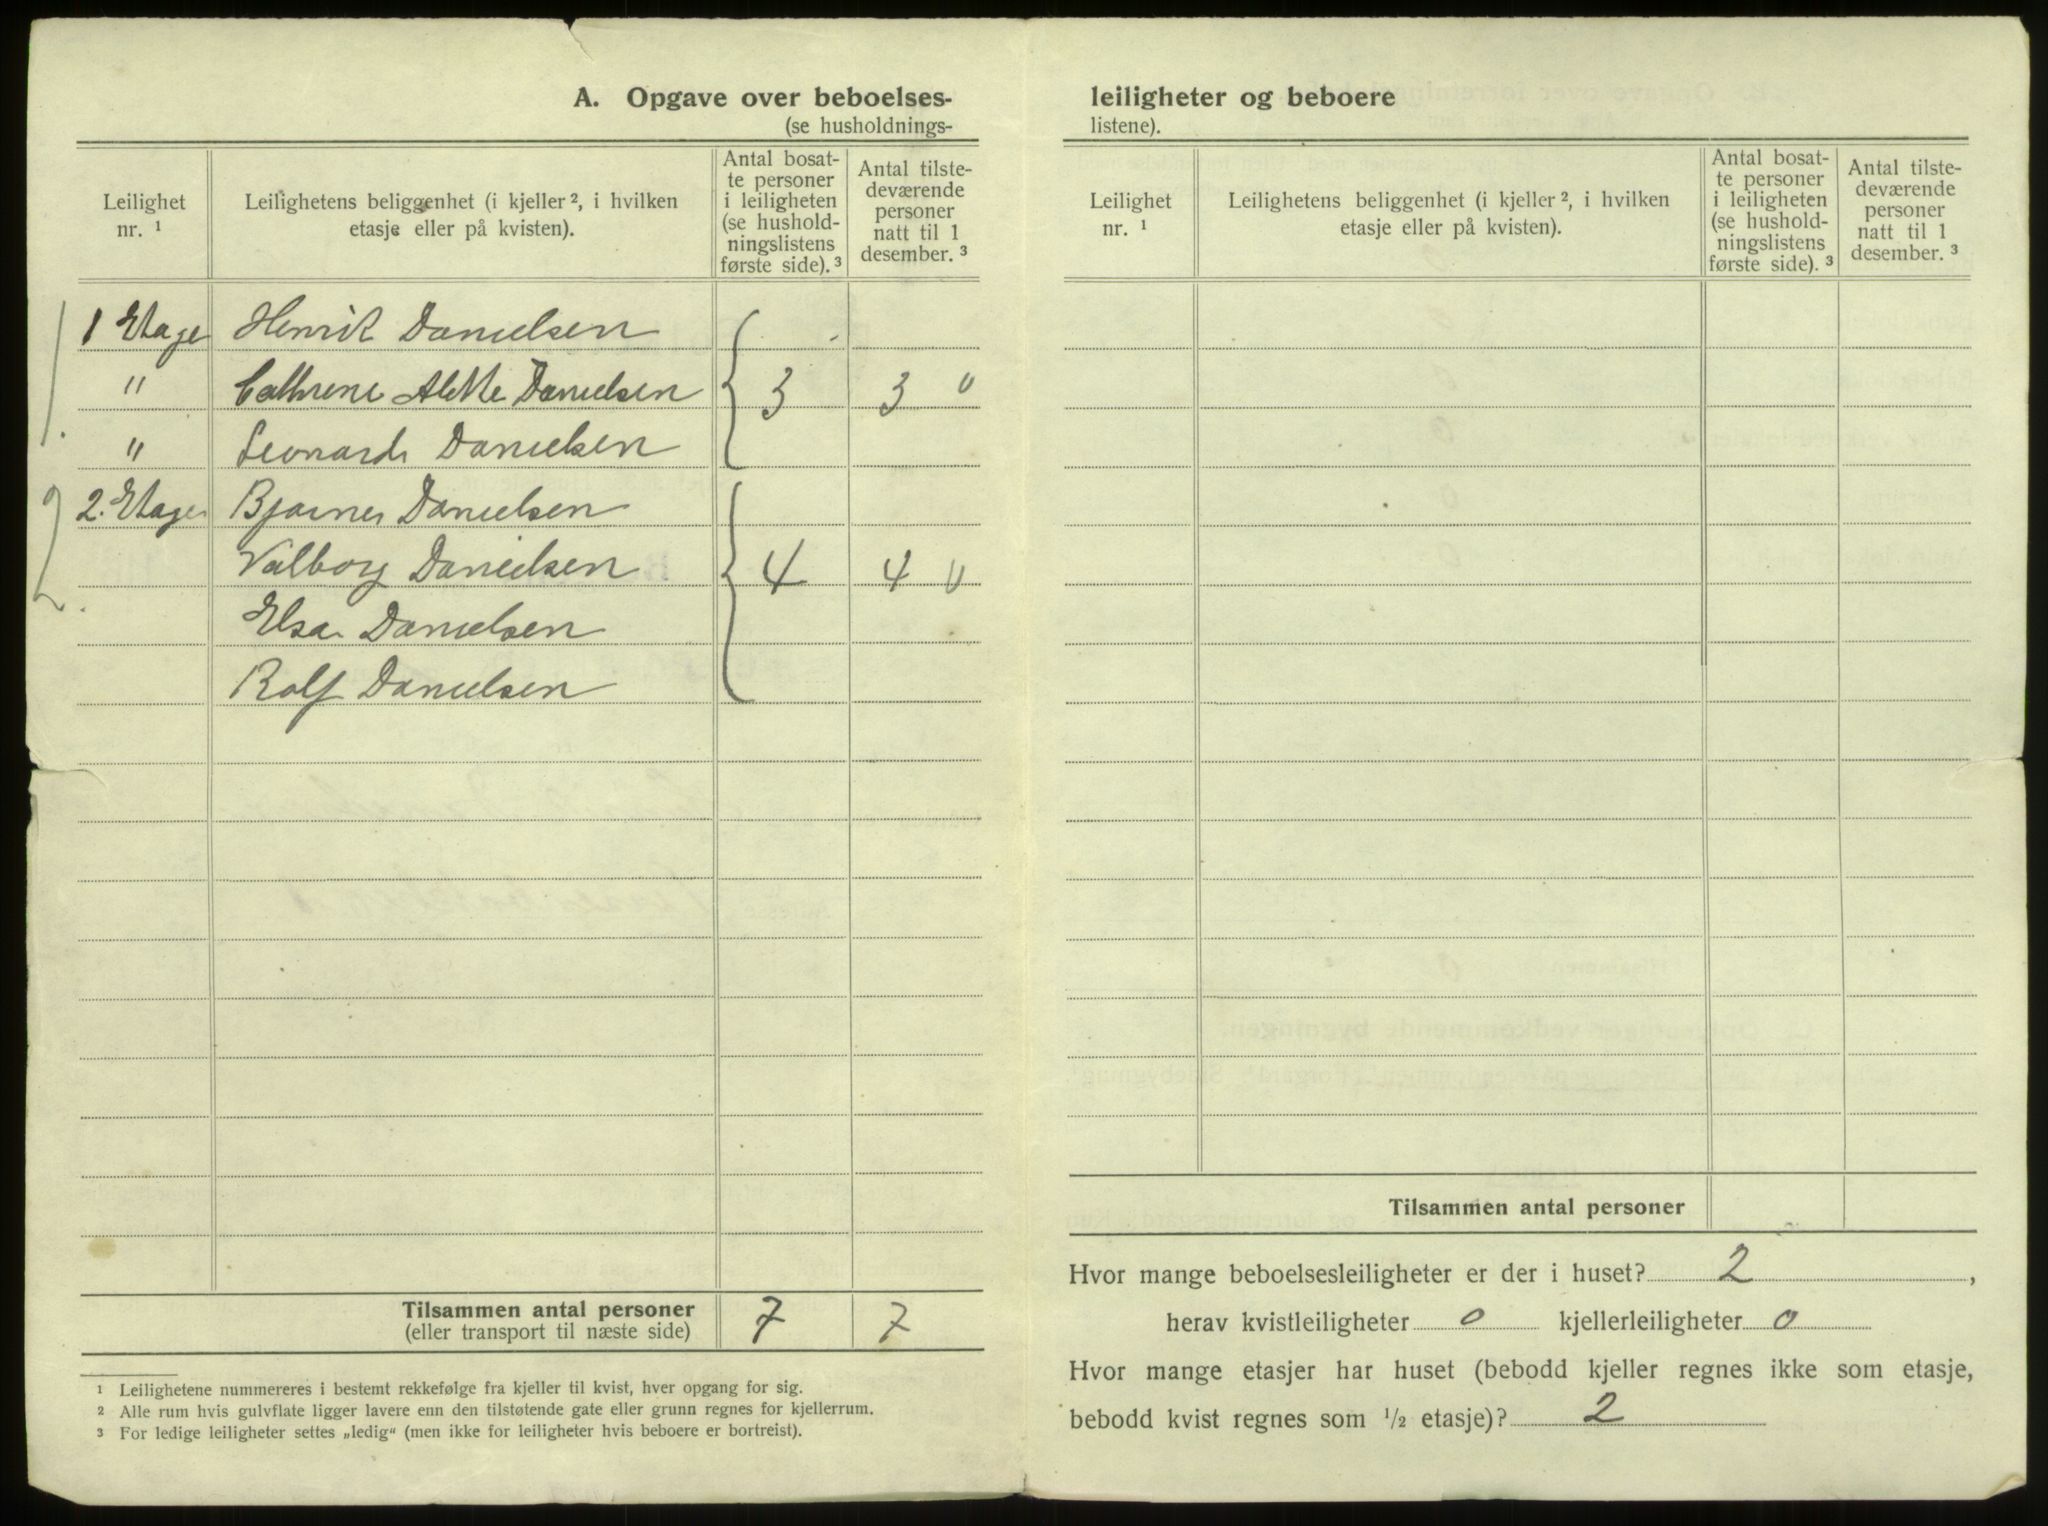 A. Opgave over beboelses-
(se husholdnings-
Leilighet nr. ¹
Leilighetens beliggenhet (i kjeller ², i hvilken etasje eller på kvisten).
Antal bosat-te personer i leiligheten (se hushold-ningslistens første side). ³
Antal tilste-deværende personer natt til 1 desember. ³
1 Etage Henrik Danielsen
" Cathrene Alette Danielsen 3 3 0
" Leonard Danielsen
2. Etage Bjarne Danielsen
Valborg Danielsen 4 4 0
Elsa Danielsen
Rolf Danielsen
1.
2.
Tilsammen antal personer 7 7
(eller transport til næste side)
¹ Leilighetene nummereres i bestemt rekkefølge fra kjeller til kvist, hver opgang for sig.
² Alle rum hvis gulvflate ligger lavere enn den tilstøtende gate eller grunn regnes for kjellerrum.
³ For ledige leiligheter settes „ledig“ (men ikke for leiligheter hvis beboere er bortreist).
leiligheter og beboere
listene).
Leilighet nr. ¹
Leilighetens beliggenhet (i kjeller ², i hvilken etasje eller på kvisten).
Antal bosat-te personer i leiligheten (se hushold-ningslistens første side). ³
Antal tilste-deværende personer natt til 1 desember. ³
Tilsammen antal personer
Hvor mange beboelsesleiligheter er der i huset? 2 ,
herav kvistleiligheter 0 kjellerleiligheter 0
Hvor mange etasjer har huset (bebodd kjeller regnes ikke som etasje,
bebodd kvist regnes som ½ etasje)? 2